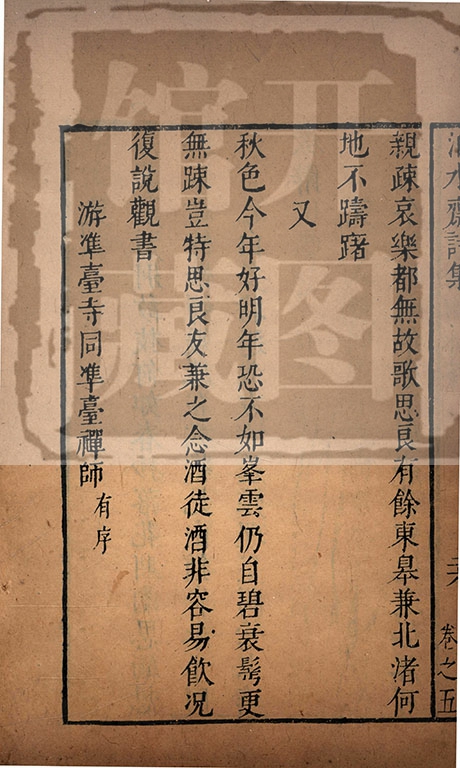 齋詩集
卷之五
親疎哀樂都無故歌思良有餘東皋兼北渚何
地不躊躇
又
秋色今年好明年恐不如峯雲仍自碧衰鬂更
無疎豈特思良友兼之念酒徒酒非容易飲况
復說觀書
游準臺寺同準臺禪師有序
开图
馆藏